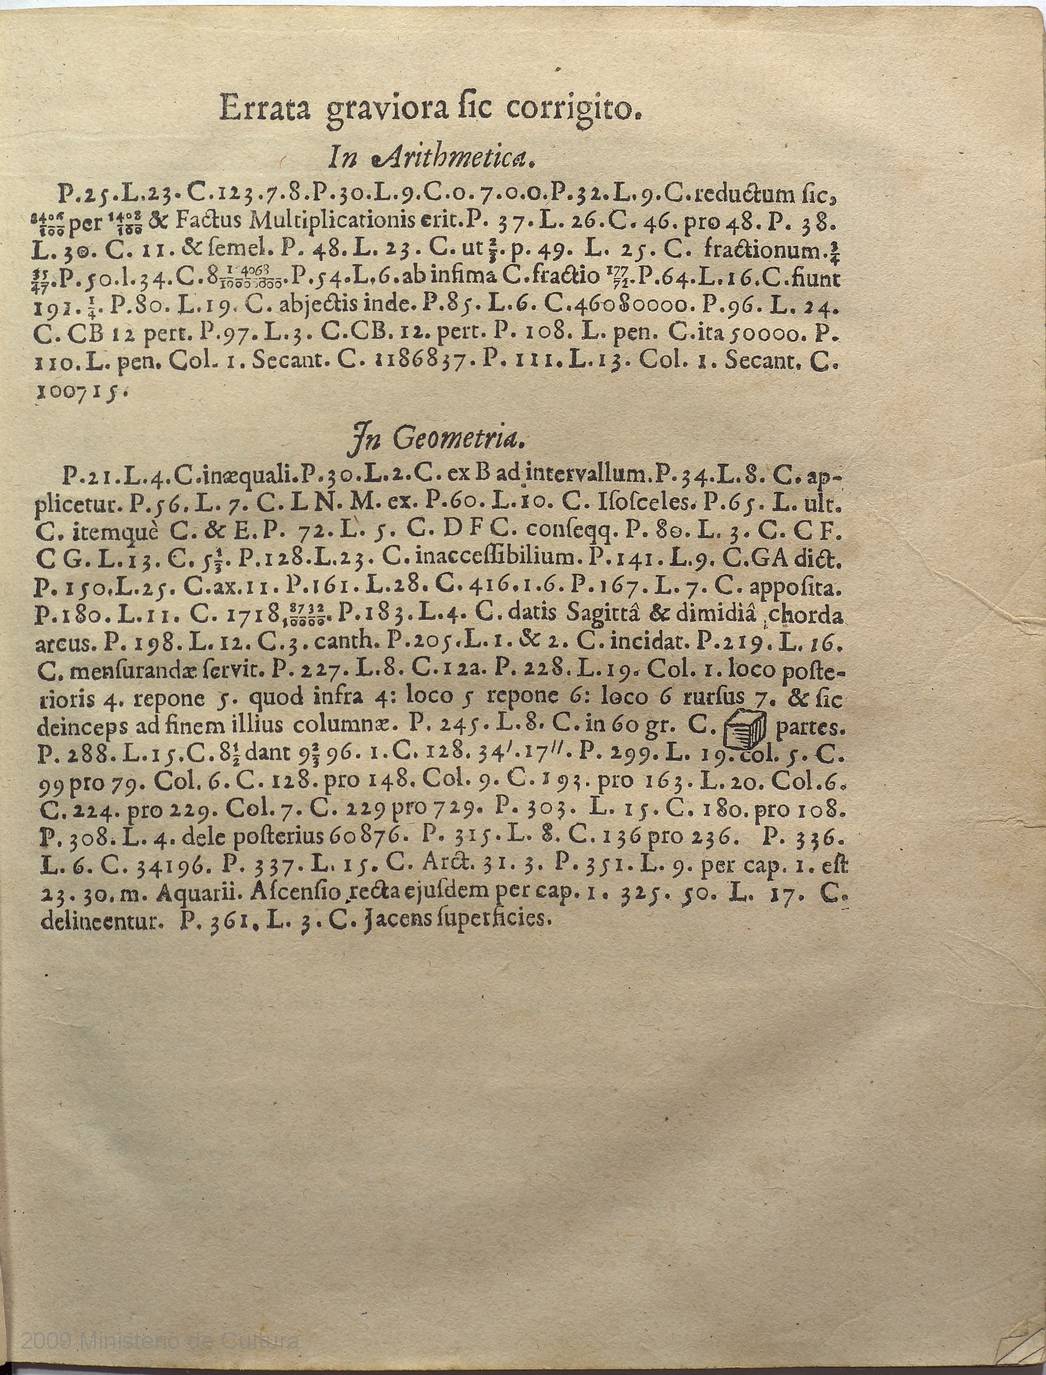 Errata graviora ſic corrigito.
In Arithmetica.
P.25.L.23.C.123.7.8.P.30.L.9.C.0.7.0.0.P.32.L.9.C.reductum ſic,
per & Factus Multiplicationis erit.P. 37.L. 26.C. 46. pro 48. P. 38.
L. 30. C. 11. & ſemel. P. 48. L. 23. C. ut p. 49. L. 25. C. fractionum.¾
P.50.l.34.C.8 P.54.L.6.ab infima C.fractio 177/72.P.64.L.16.C.fiunt
191.¼. P.80. L.19. C. abjectis inde. P.85. L.6. C.46080000. P.96. L. 24.
C. CB 12 pert. P.97. L.3. C.CB. 12. pert. P. 108. L. pen. C.ita 50000. P.
110. L. pen. Col. 1. Secant. C. 1186837. P. 111. L.13. Col. 1. Secant. C.
100715.
In Geometria.
P.21.L.4.C.inæquali.P.30.L.2.C. ex B ad intervallum.P.34.L.8. C. ap-
plicetur. P.56. L. 7. C. L N. M. ex. P.60. L.10. C. Iſoſceles. P.65. L. ult.
C. itemquè C. & E. P. 72. L. 5. C. D F C. conſeqq. P. 80. L. 3. C. C F.
C G. L.13. C. 5⅓. P.128.L.23. C. inacceſſibilium. P.141. L.9. C.GA dict.
P. 150.L.25. C.ax.11. P.161. L.28. C. 416.1.6. P.167. L. 7. C. appoſita.
P.180. L.11. C. 1718, P.183. L.4. C. datis Sagittâ & dimidiâ chorda
arcus. P. 198. L. 12. C.3. canth. P.205.L.1. & 2. C. incidat. P.219. L. 16.
C. menſurandæ ſervit. P. 227. L.8. C.12a. P. 228. L.19. Col. 1. loco poſte-
rioris 4. repone 5. quod infra 4: loco 5 repone 6: loco 6 rurſus 7. & ſic
deinceps ad finem illius columnæ. P. 245. L.8. C. in 60 gr. C. partes.
P. 288. L.15.C. 8½ dant 9⅔ 96. 1.C. 128. 34′.17″. P. 299. L. 19. col. 5. C.
99 pro 79. Col. 6. C. 128. pro 148. Col. 9. C. 193. pro 163. L. 20. Col.6.
C. 224. pro 229. Col. 7. C. 229 pro 729. P. 303. L. 15. C. 180. pro 108.
P. 308. L. 4. dele poſterius 60876. P. 315. L. 8. C. 136 pro 236. P. 336.
L. 6. C. 34196. P. 337. L. 15. C. Arct. 31. 3. P. 351. L. 9. per cap. 1. eſt
23. 30. m. Aquarii. Aſcenſio recta ejuſdem per cap. 1. 325. 50. L. 17. C.
delineentur. P. 361. L. 3. C. Jacens ſuperficies.
2009 Ministerio de Cultura